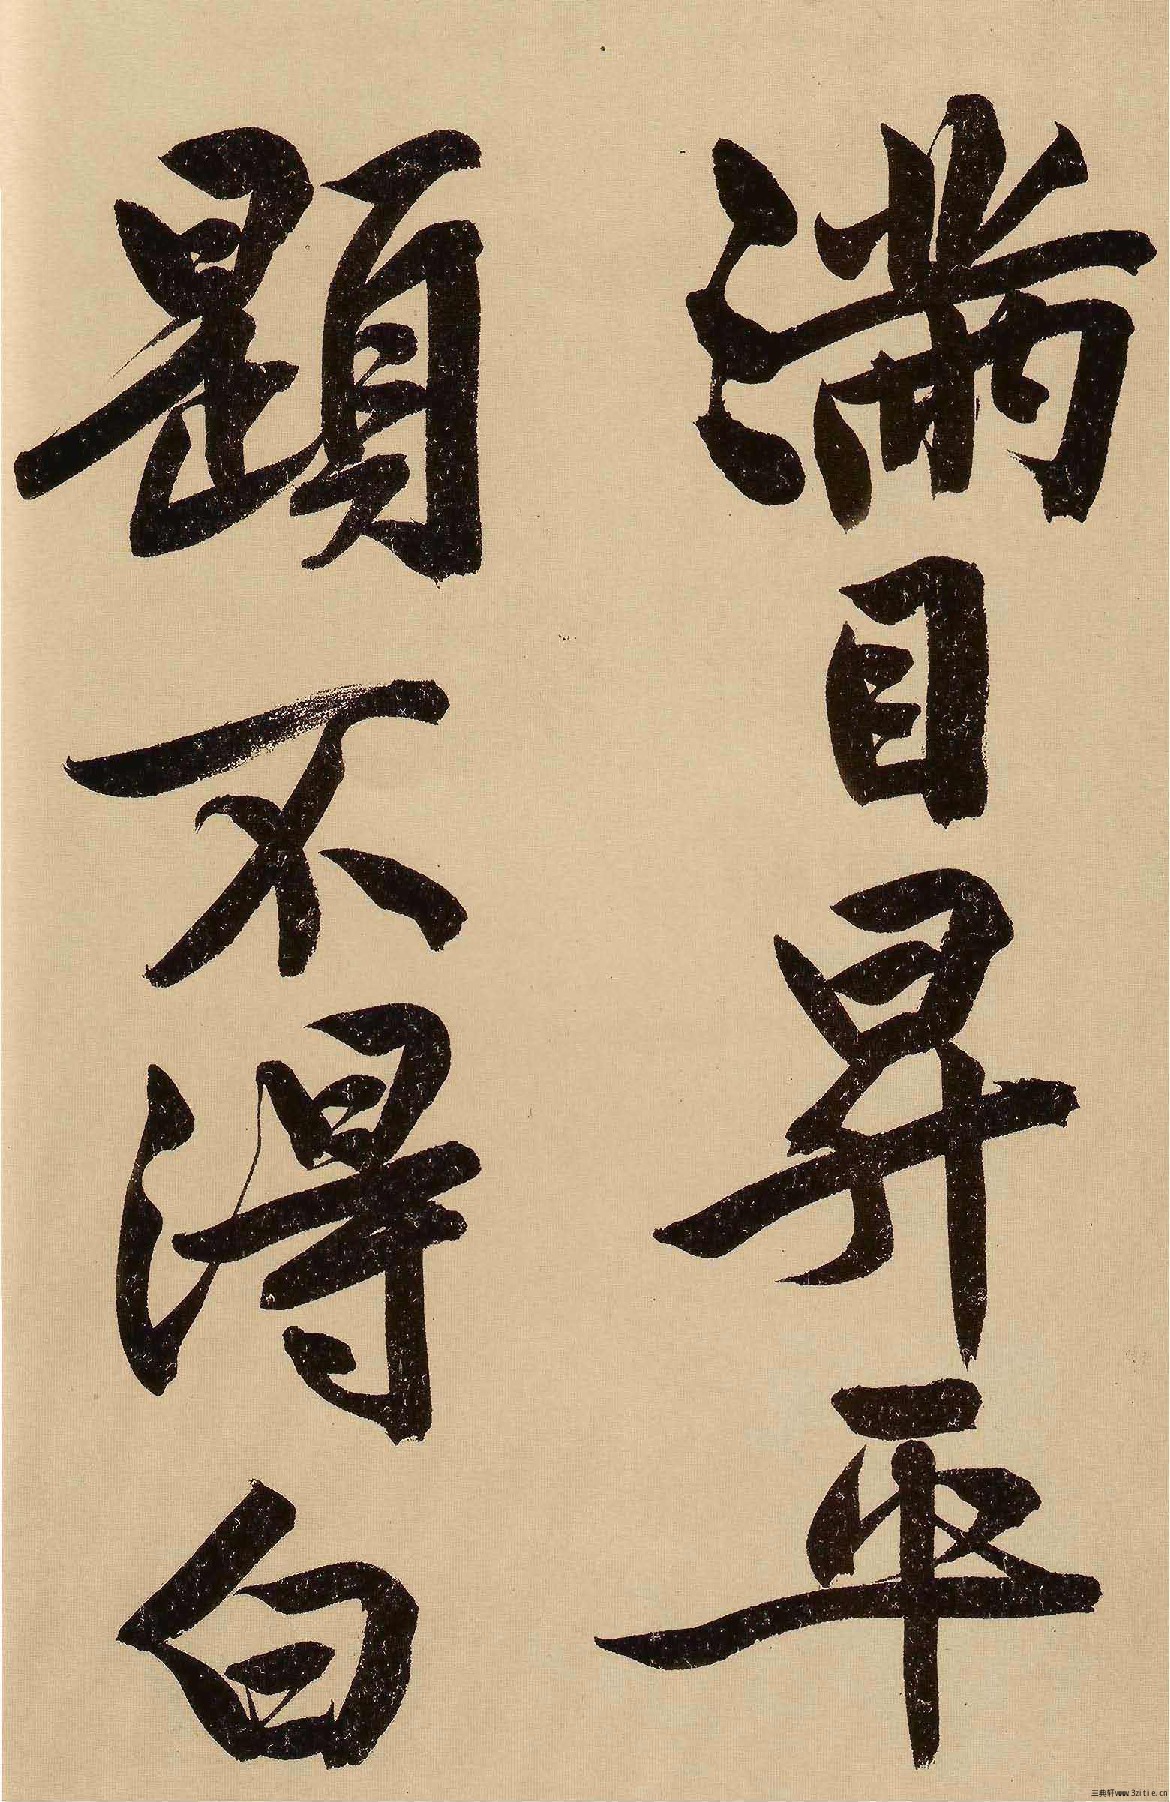 滿目昇平
題不得白
三典轩www.3zitie.cn